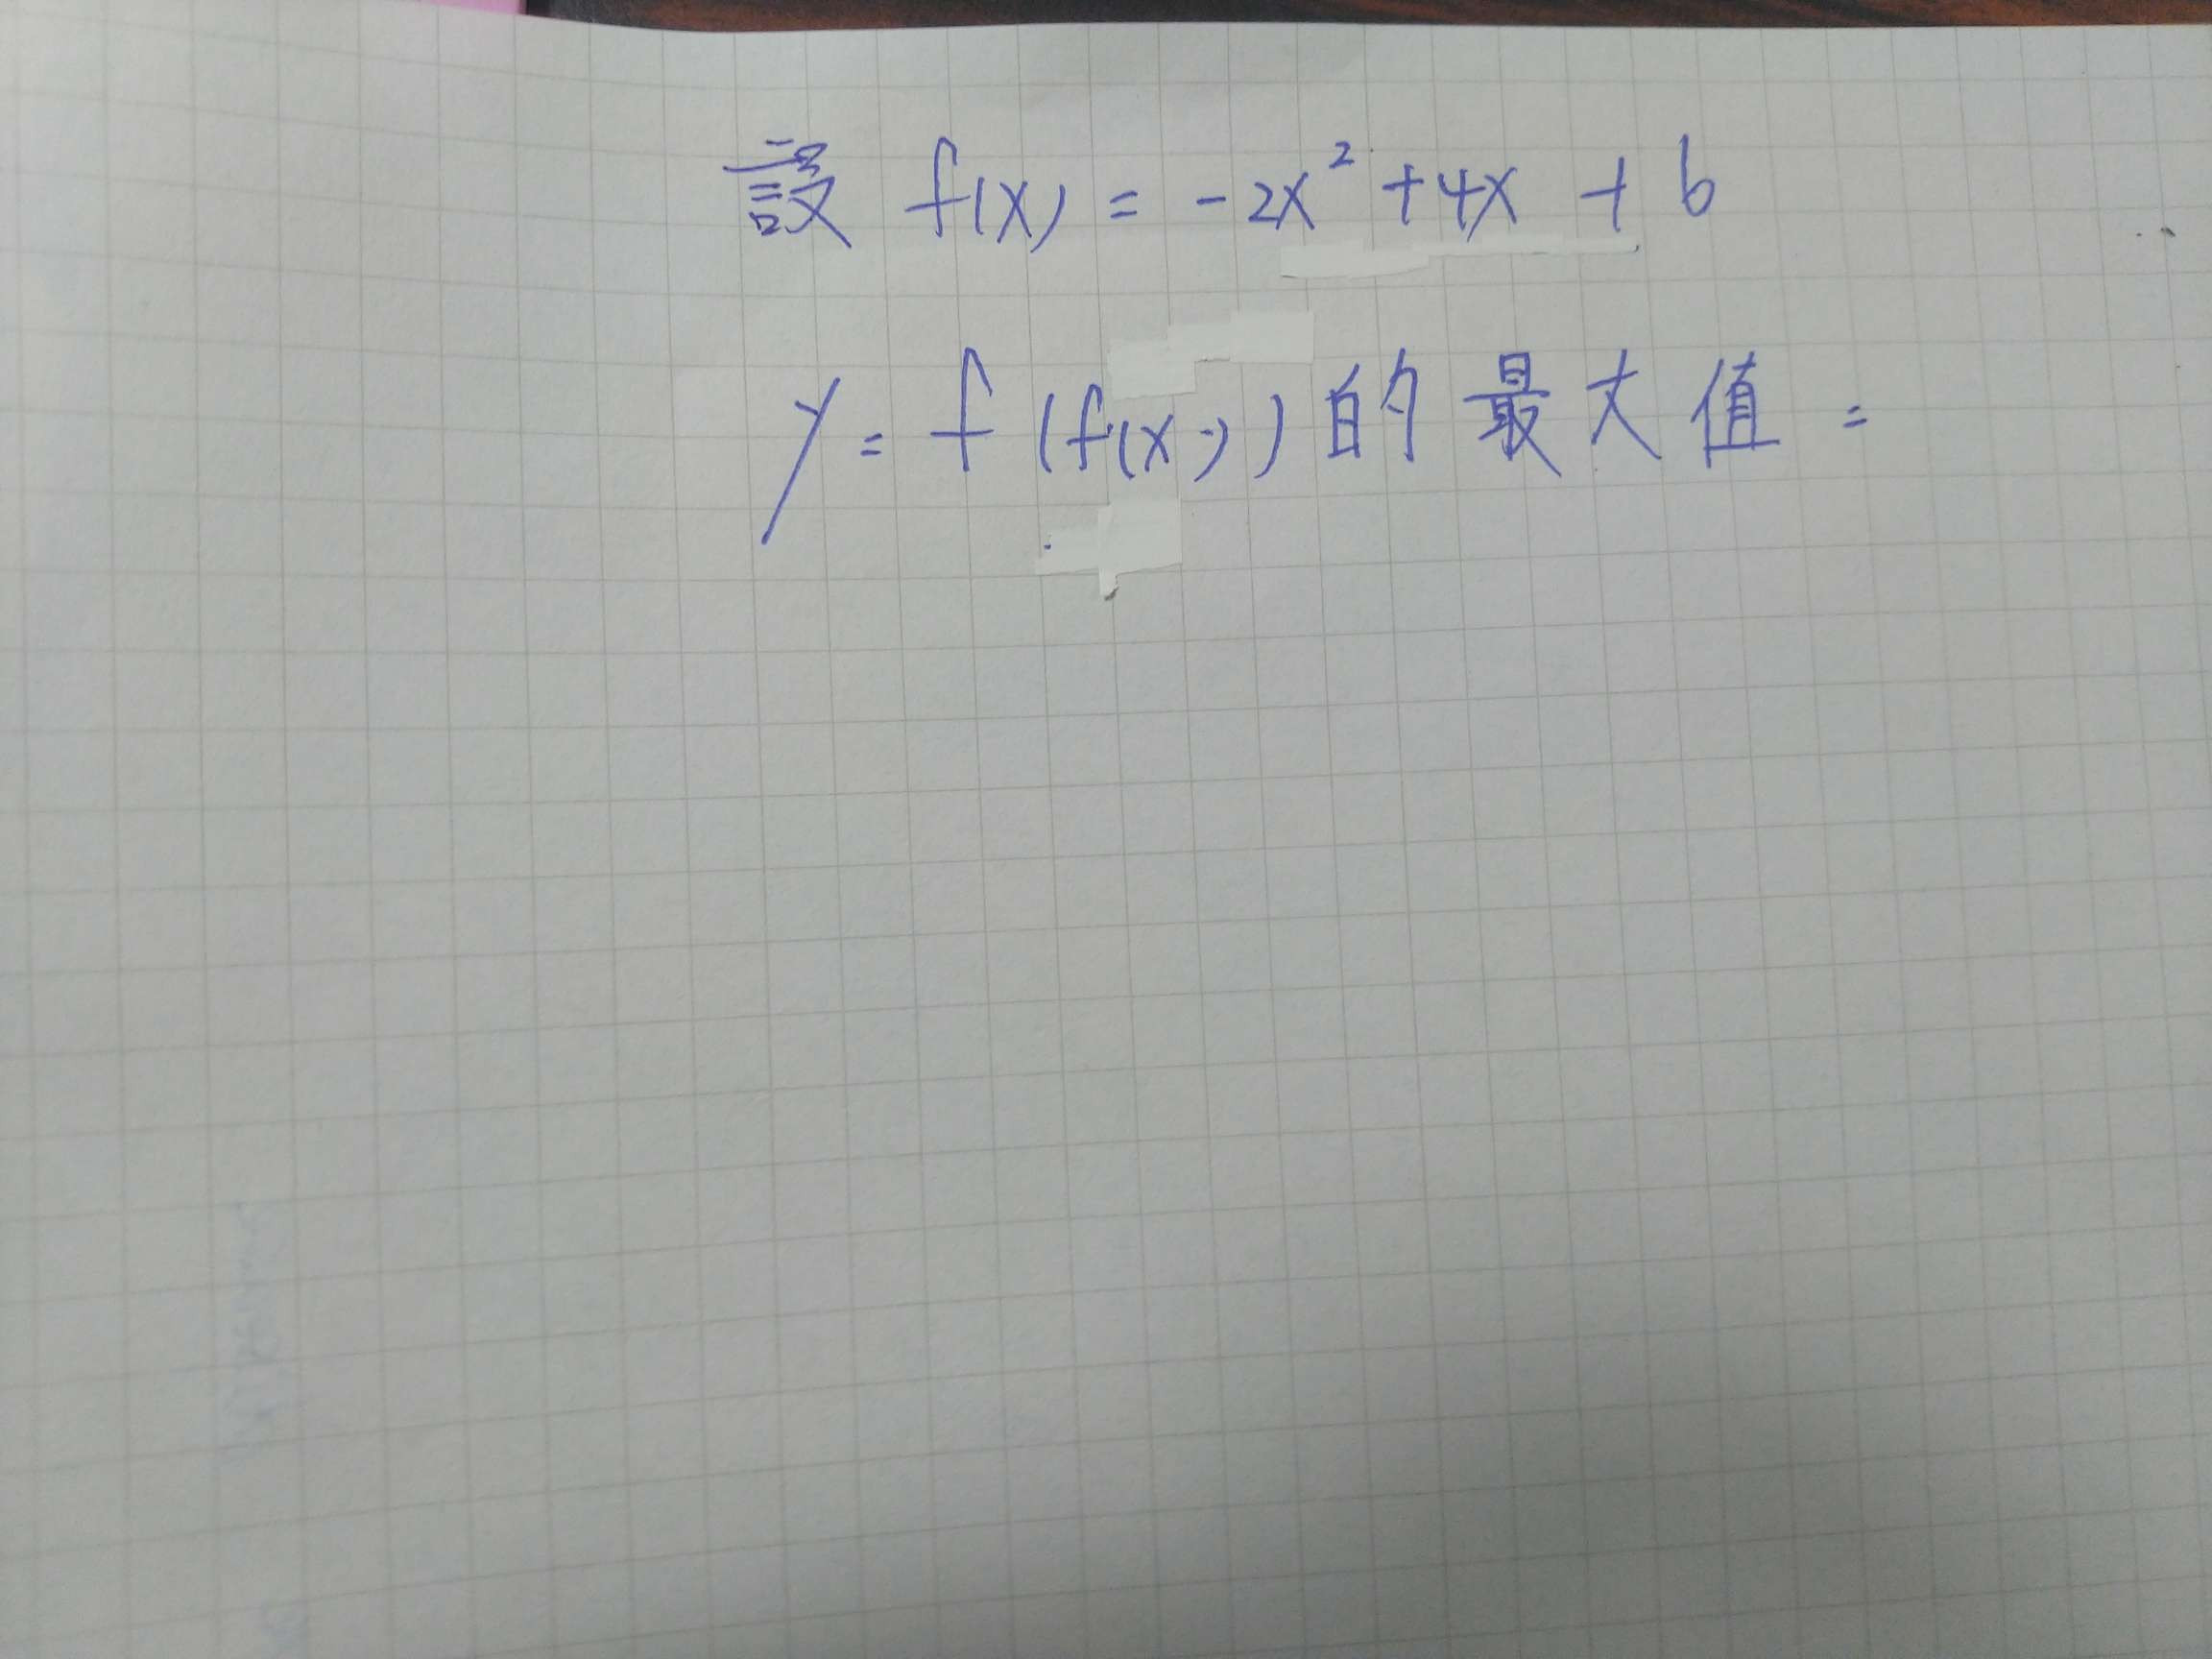 設 f(x) = -2x² + 4x + b
y = f(f(x)) 的最大值 =